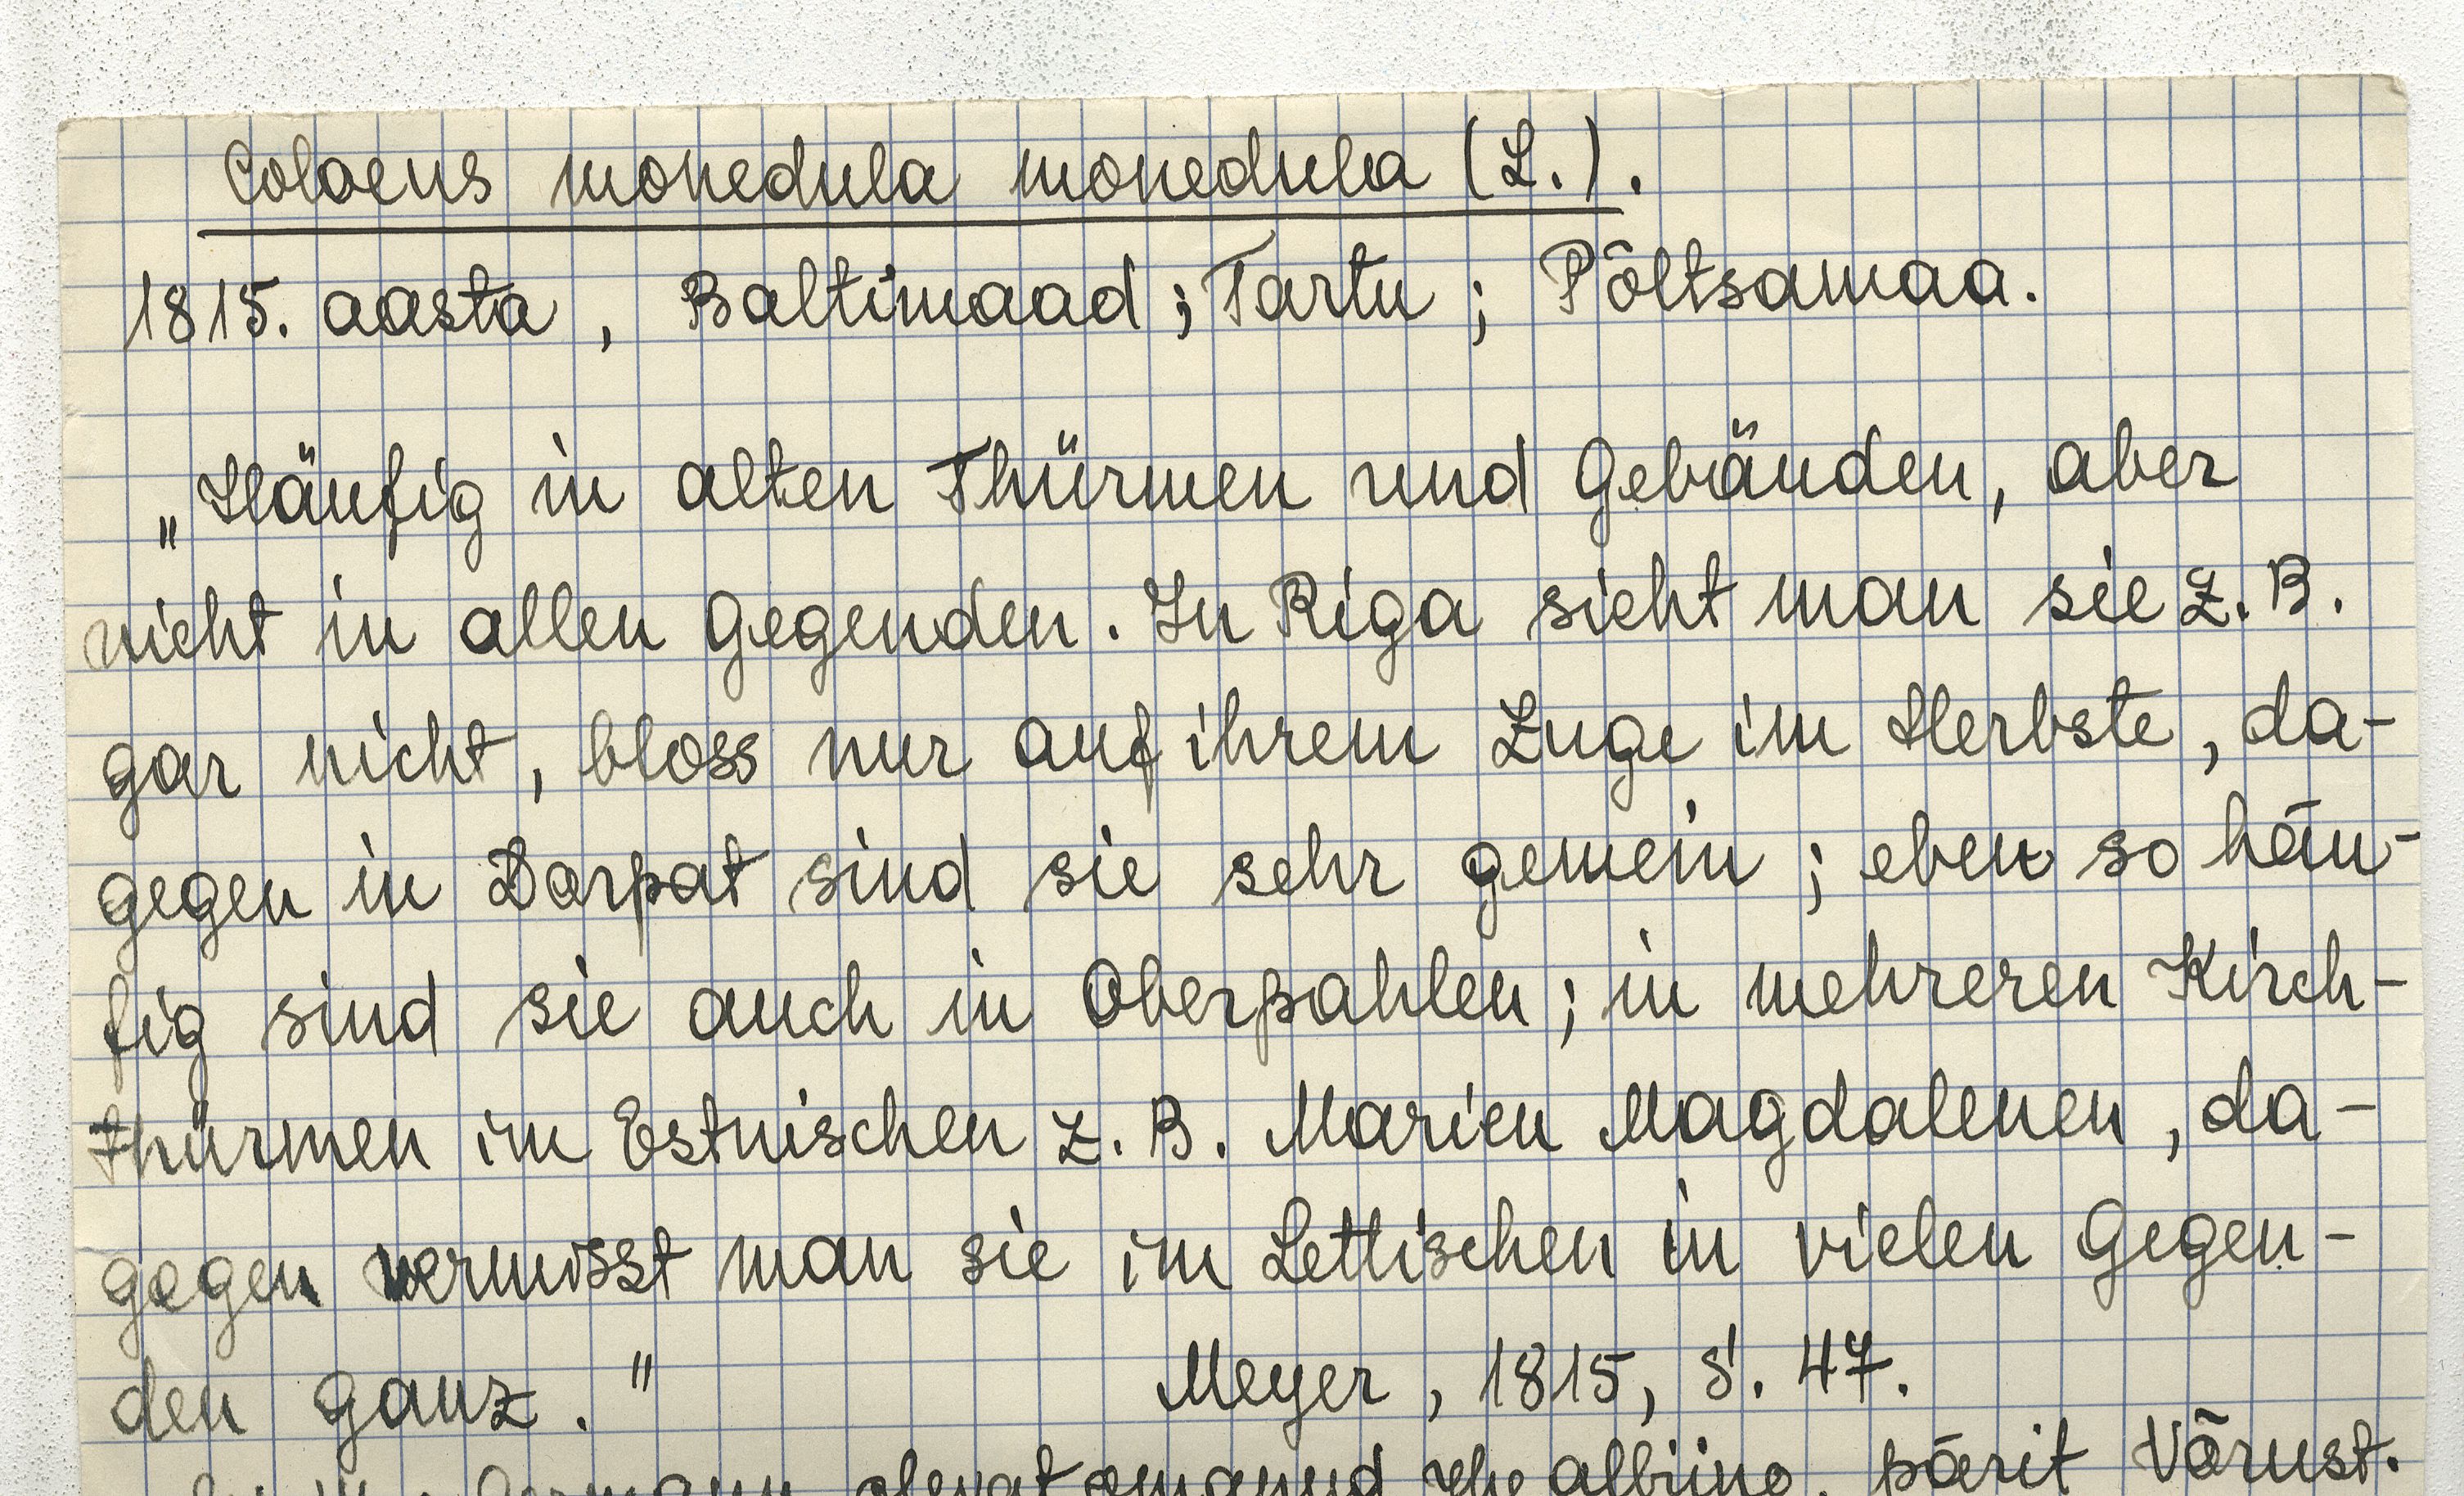 Coloeus monedula monedula (L.).
1815. aasta, Baltimaad; Tartu; Põltsamaa.
„Häufig in alten Thürmen und Gebäuden, aber
nicht in allen Gegenden. In Riga sieht man sie z. B.
gar nicht, bloss nur auf ihrem Zuge im Herbste, da-
gegen in Dorpat sind sie sehr gemein; eben so häu-
fig sind sie auch in Oberpahlen; in mehreren Kirch-
thürmen im Estnischen z. B. Marien Magdalenen, da-
gegen vermisst man sie im Lettischen in vielen Gegen-
den ganz." Meyer, 1815, S. 47.
olevat omanud ühe albiino, pärit Võrust.